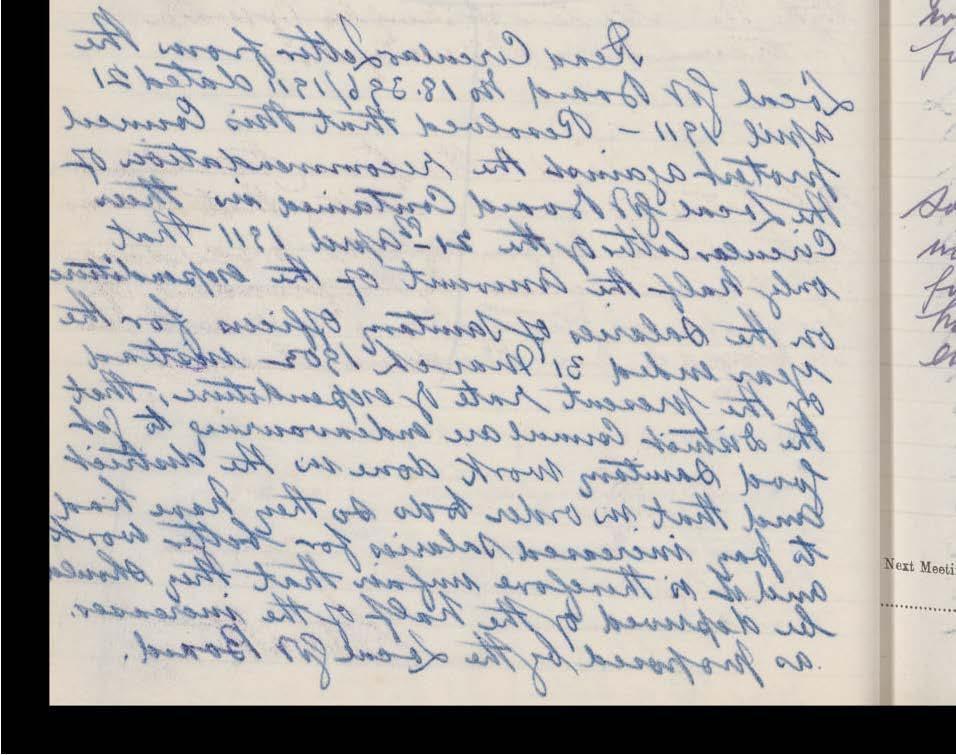 Read Circular Letter from the
Local Govt Board No 18.396/1911 dated 21
April 1911 – Resolved that this Council
protest against the recommendation of
the Local Govt Board Contained in their
Circular letter of the 21st April 1911 that
only half the amount of the expenditure
on the Salaries of Sanitary Officers for the
year ended 31 March 1903 instead
of the present rate of expenditure, that
the District Council are endeavouring to get
good Sanitary work done in the district
and that in order to do so they have had
to pay increased salaries for better work
and it is therefore unfair that they should
be deprived of the half of the increases
as proposed by the Local Govt Board.
Next Meeti